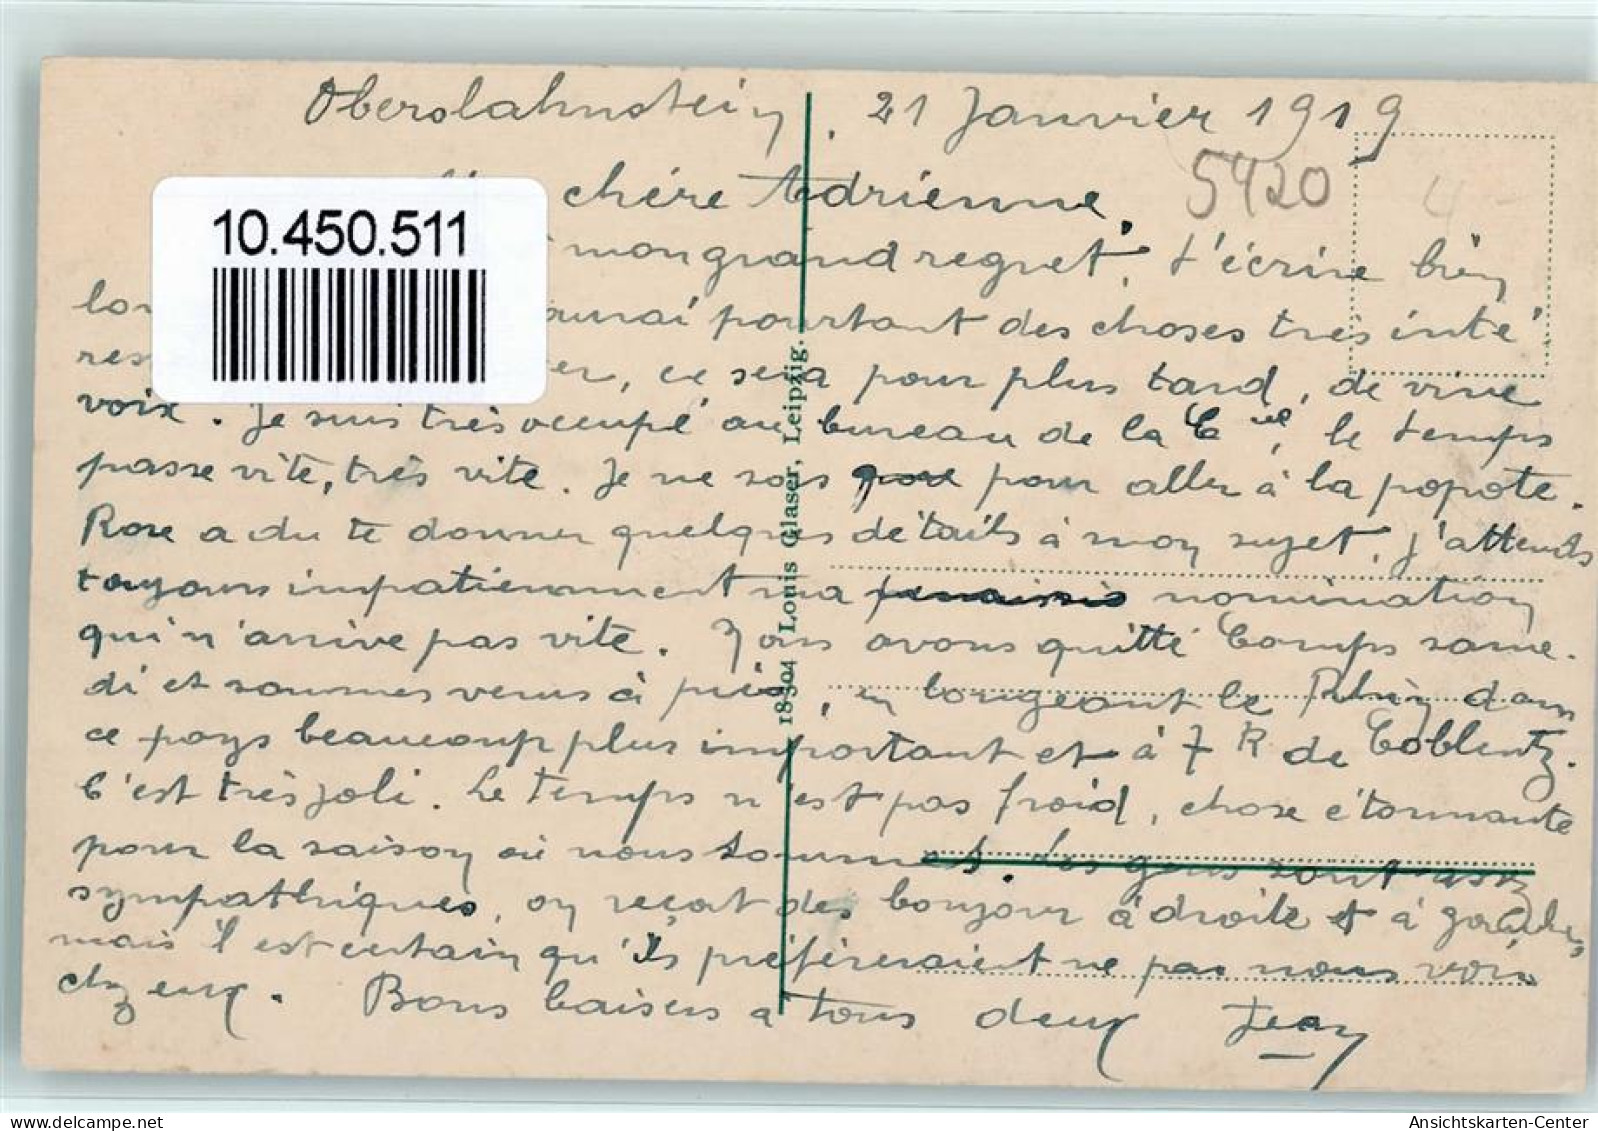 Oberslahnstein, 21 Janvier 1919
chère Adrienne,
5420
4-
10.450.511
mon grand regret, t'écrire bien
lon aurai pourtant des choses très inté
res er, ce sera pour plus tard, de vive
voix. Je suis très occupé au bureau de la Cie, le temps
passe vite, très vite. Je ne sors pour aller à la popote.
Rose a du te donner quelques détails à mon sujet. J'attends
toujours impatiemment ma nomination
qui n'arrive pas vite. Nous avons quitté Camps same-
di et sommes venus à pied, en longeant le Rhin dans
ce pays beaucoup plus important et à 7 K de Coblentz.
C'est très joli. Le temps n'est pas froid, chose étonnante
pour la saison où nous sommes. Les gens sont assez
sympathiques, on reçoit des bonjour à droite et à gauche,
mais il est certain qu'ils préféreraient ne pas nous voir
chez eux. Bons baisers à tous deux Jean
18304 Louis Glaser, Leipzig.
Ansichtskarten-Center